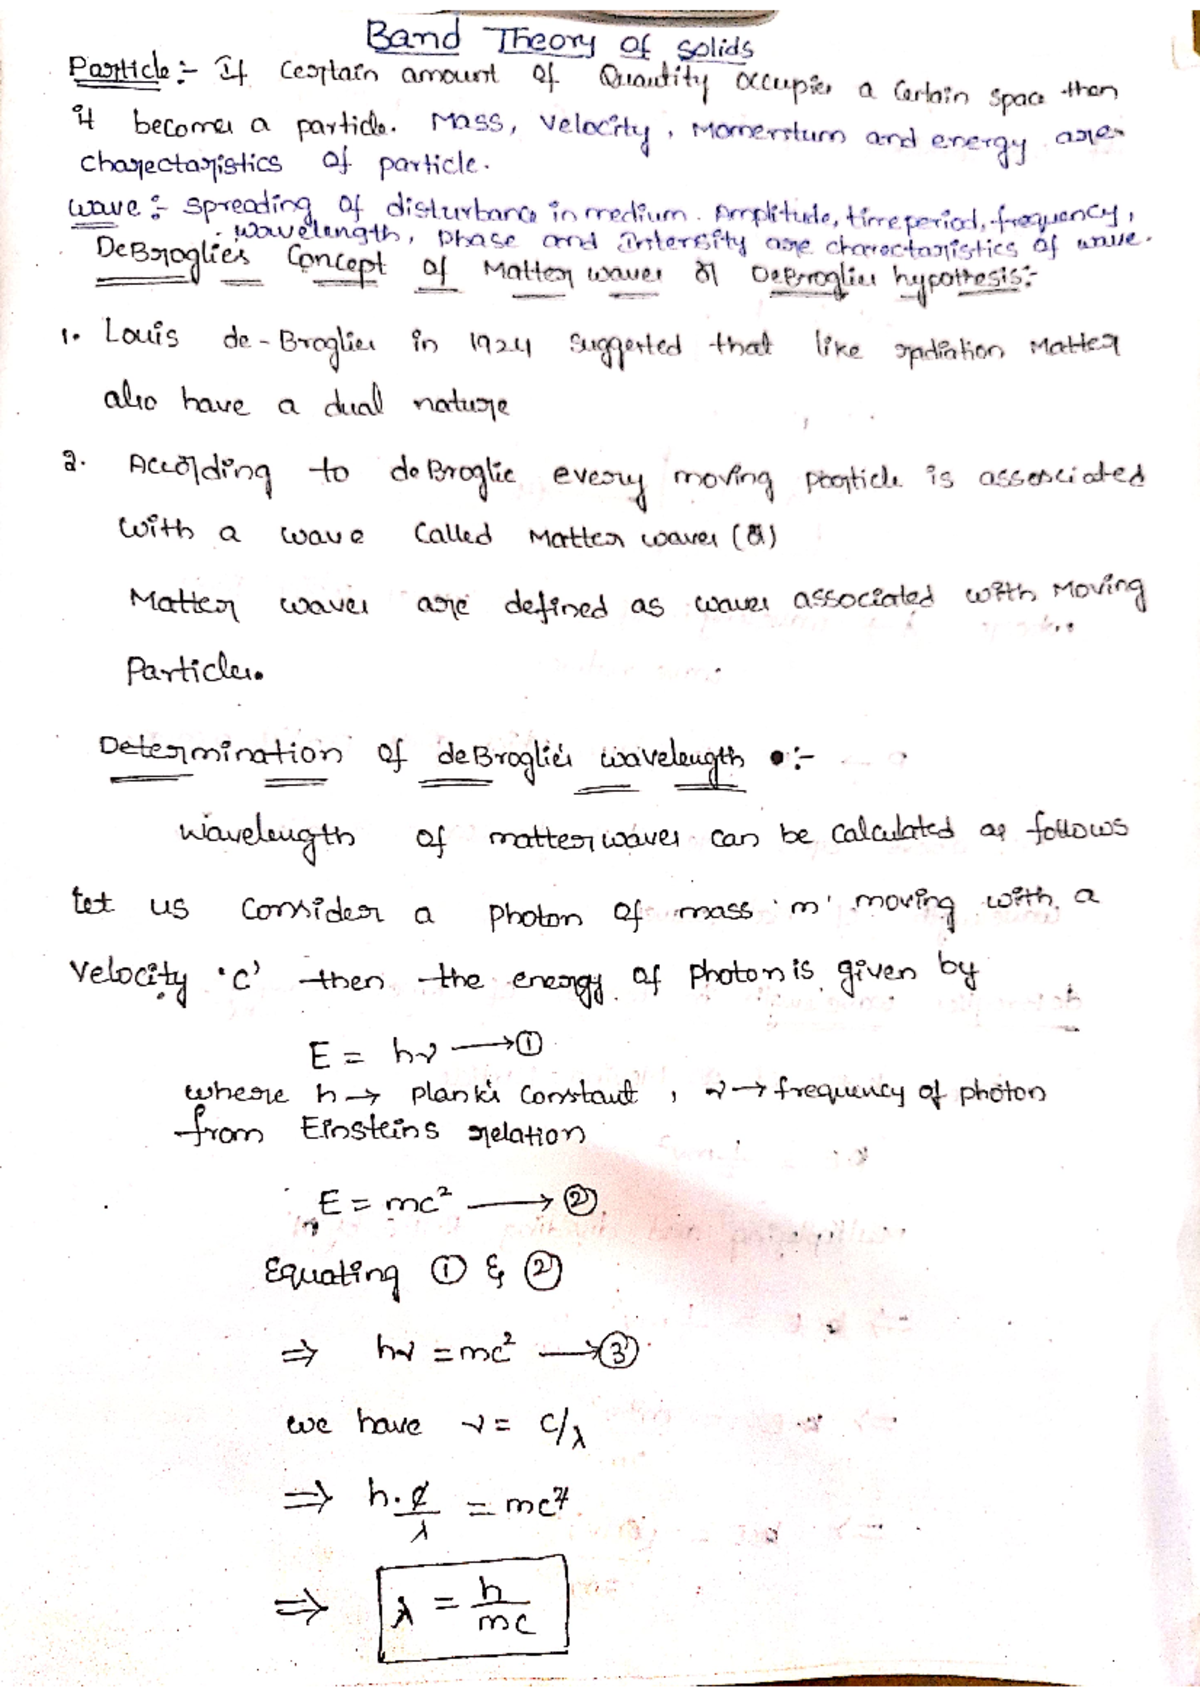 Band Theory of solids
Particle:- If Certain amount of Quantity occupies a Certain space then
it becomes a particle. Mass, velocity, Momentum and energy are
charectaristics of particle.
wave:- spreading of disturbance in medium. Amplitude, time period, frequency,
wavelength, phase and intensity are charectaristics of wave.
DeBroglie's Concept of Matter waves or DeBroglies hypothesis:-
1. Louis de-Broglies in 1924 suggested that like radiation Matter
also have a dual nature
2. According to deBroglie every moving particle is assosciated
with a wave called Matter waves (or)
Matter waves are defined as waves associated with Moving
Particles.
Determination of deBroglie's wavelength :-
Wavelength of matter waves can be calculated as follows
Let us Consider a photon of mass 'm' moving with a
Velocity 'c' then the energy of photon is given by
E = hν ⟶ ①
where h → plank's constant, ν → frequency of photon
from Einsteins relation
E = mc² ⟶ ②
Equating ① & ②
⇒ hν = mc² ⟶ ③
we have ν = c/λ
⇒ h.c/λ = mc²
⇒ λ = h/mc